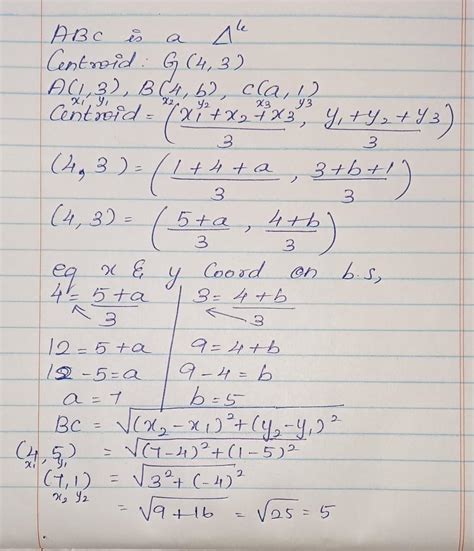 ABC is a Δle
Centroid : G(4,3)
A(1,3), B(4,b), C(a,1)
x1 y1 x2 y2 x3 y3
Centroid = (x1+x2+x3/3, y1+y2+y3/3)
(4,3) = (1+4+a/3, 3+b+1/3)
(4,3) = (5+a/3, 4+b/3)
eq x & y Coord on b.s,
4 = 5+a/3 | 3 = 4+b/3
12 = 5+a | 9 = 4+b
12-5=a | 9-4=b
a = 7 | b=5
BC = √(x2-x1)²+(y2-y1)²
(4,5) = √(7-4)²+(1-5)²
x1 y1
(7,1) = √3²+(-4)²
x2 y2
= √9+16 = √25 = 5